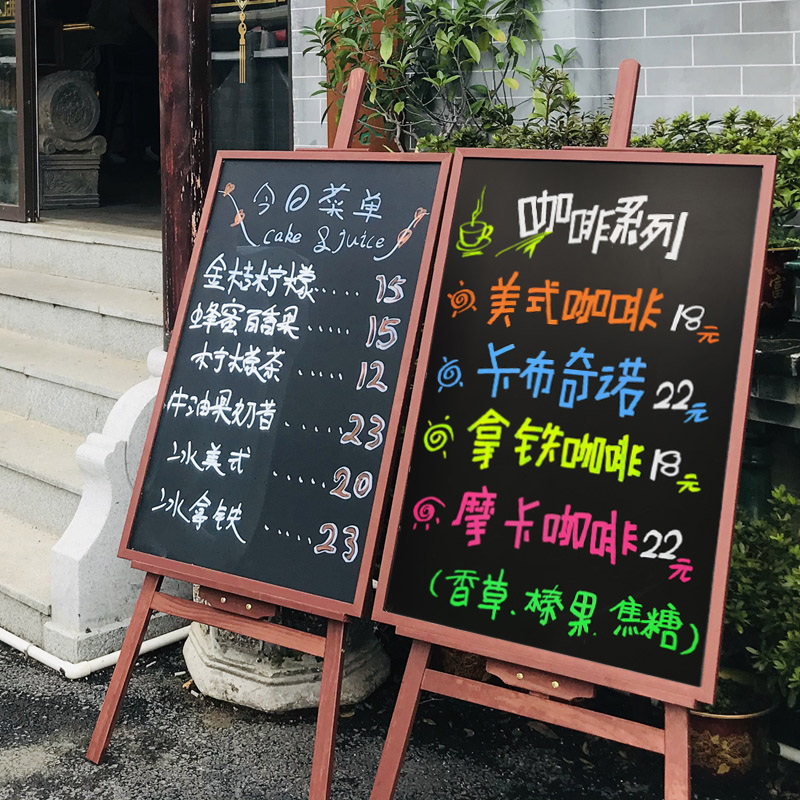 今日菜单
cake & juice
金桔柠檬...... 15
蜂蜜百香果..... 15
柠檬茶...... 12
牛油果奶昔..... 23
冰美式..... 20
冰拿铁..... 23
咖啡系列
美式咖啡 18元
卡布奇诺 22元
拿铁咖啡 18元
摩卡咖啡 22元
(香草.榛果.焦糖)